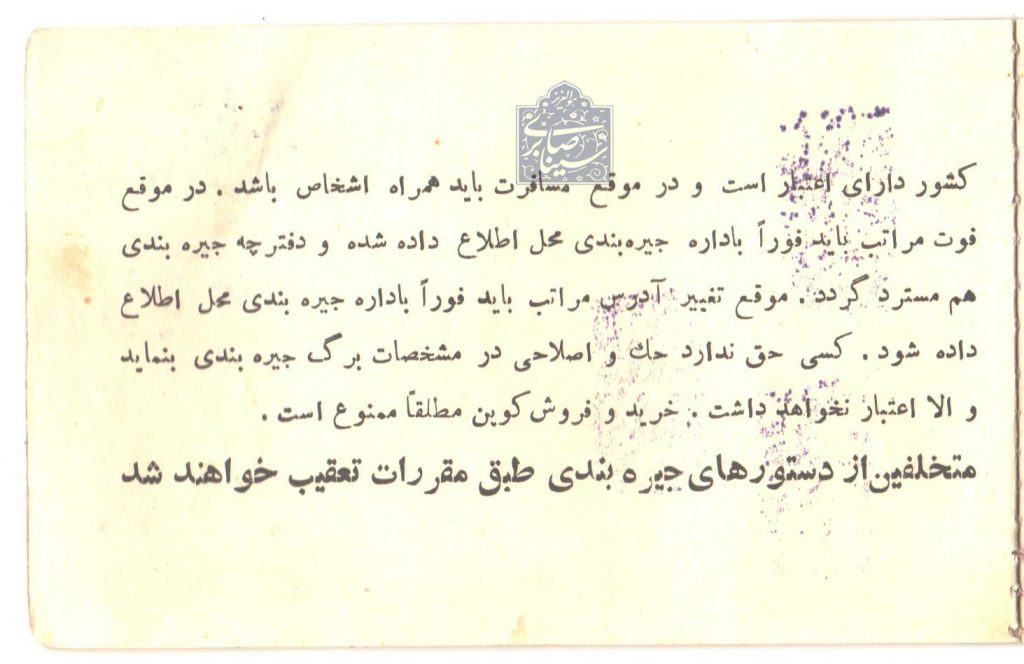 ابوالعزیز
سینا صابری
کشور دارای اعتبار است و در موقع مسافرت باید همراه اشخاص باشد . در موقع
فوت مراتب باید فوراً باداره جیره‌بندی محل اطلاع داده شده و دفترچه جیره بندی
هم مسترد گردد . موقع تغییر آدرس مراتب باید فوراً باداره جیره بندی محل اطلاع
داده شود . کسی حق ندارد حك و اصلاحی در مشخصات برگ جیره بندی بنماید
و الا اعتبار نخواهد داشت . خرید و فروش کوپن مطلقاً ممنوع است .
متخلفین از دستورهای جیره بندی طبق مقررات تعقیب خواهند شد